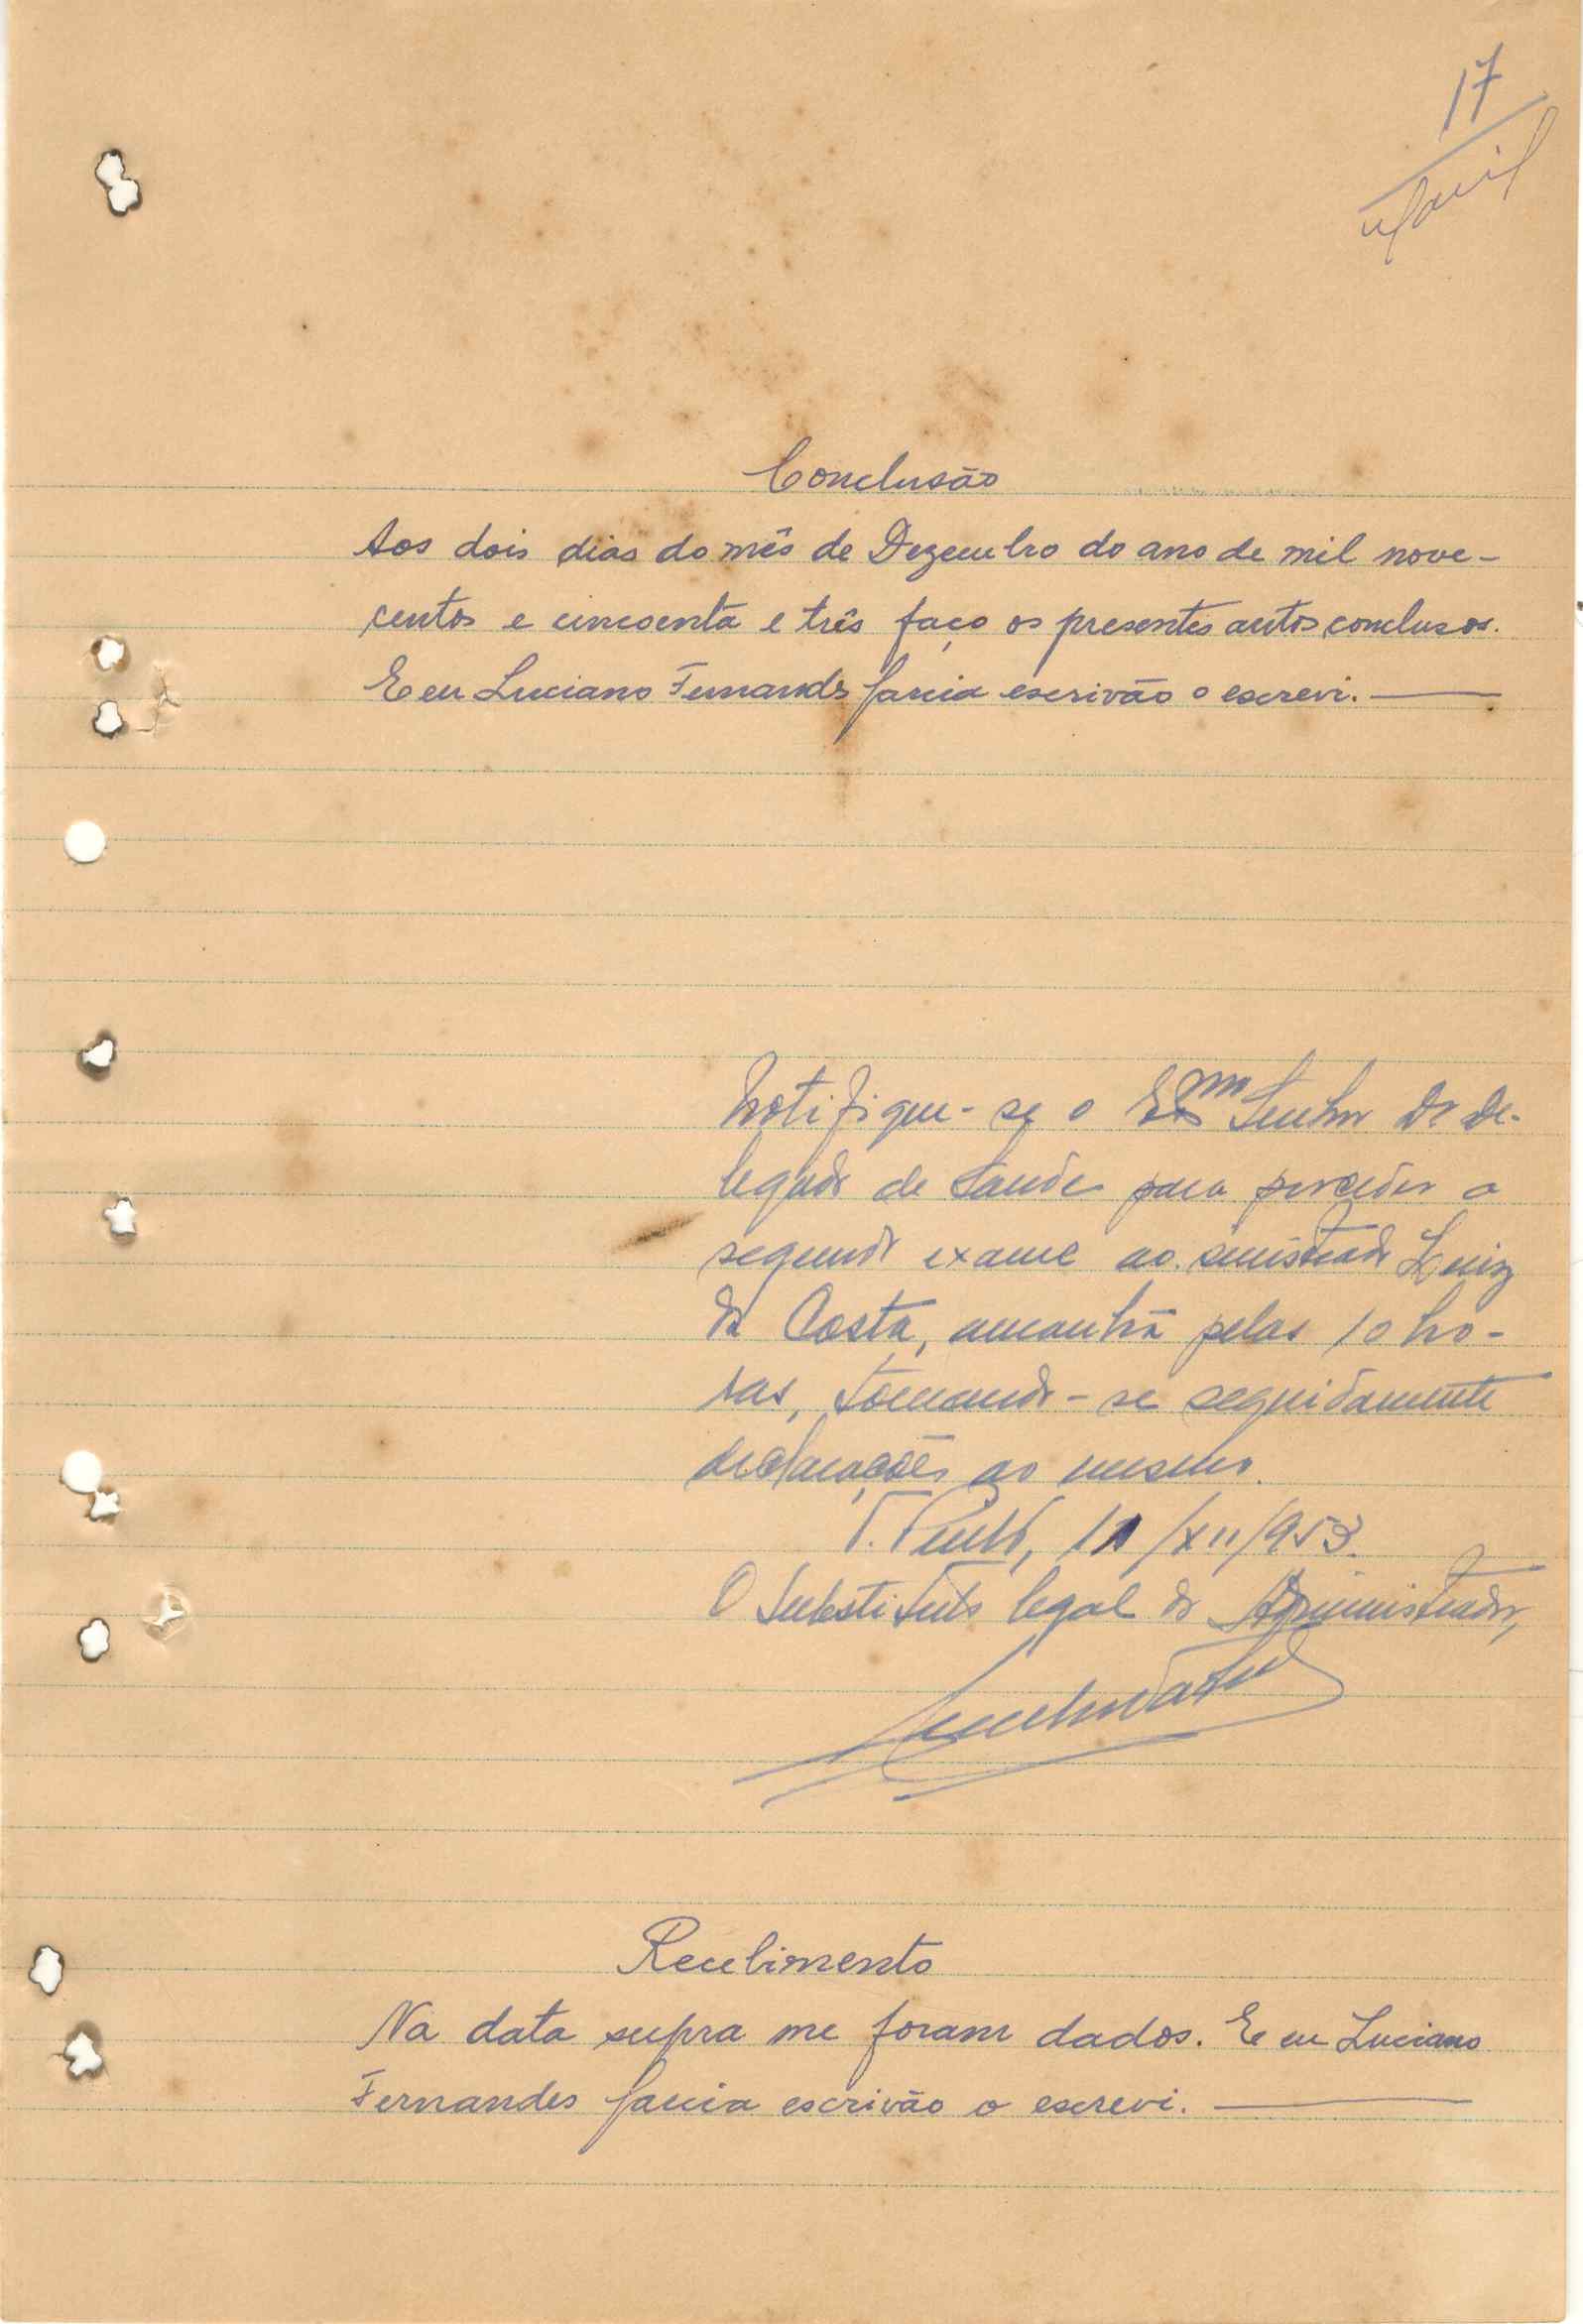 17
Conclusão
Aos dois dias do mês de Dezembro do ano de mil nove-
centos e cincoenta e três faço os presentes autos conclusos.
E eu Luciano Fernandes Garcia escrivão o escrevi.
Notifique-se o Exmo Senhor Dr De-
legado de Saude para proceder a
segundo exame ao sinistrado Luiz
da Costa, amanhã pelas 10 ho-
ras, tomando-se seguidamente
declarações ao mesmo.
/XII/953.
O Substituto legal do Administrador,
Recebimento
Na data supra me foram dados. E eu Luciano
Fernandes Garcia escrivão o escrevi.